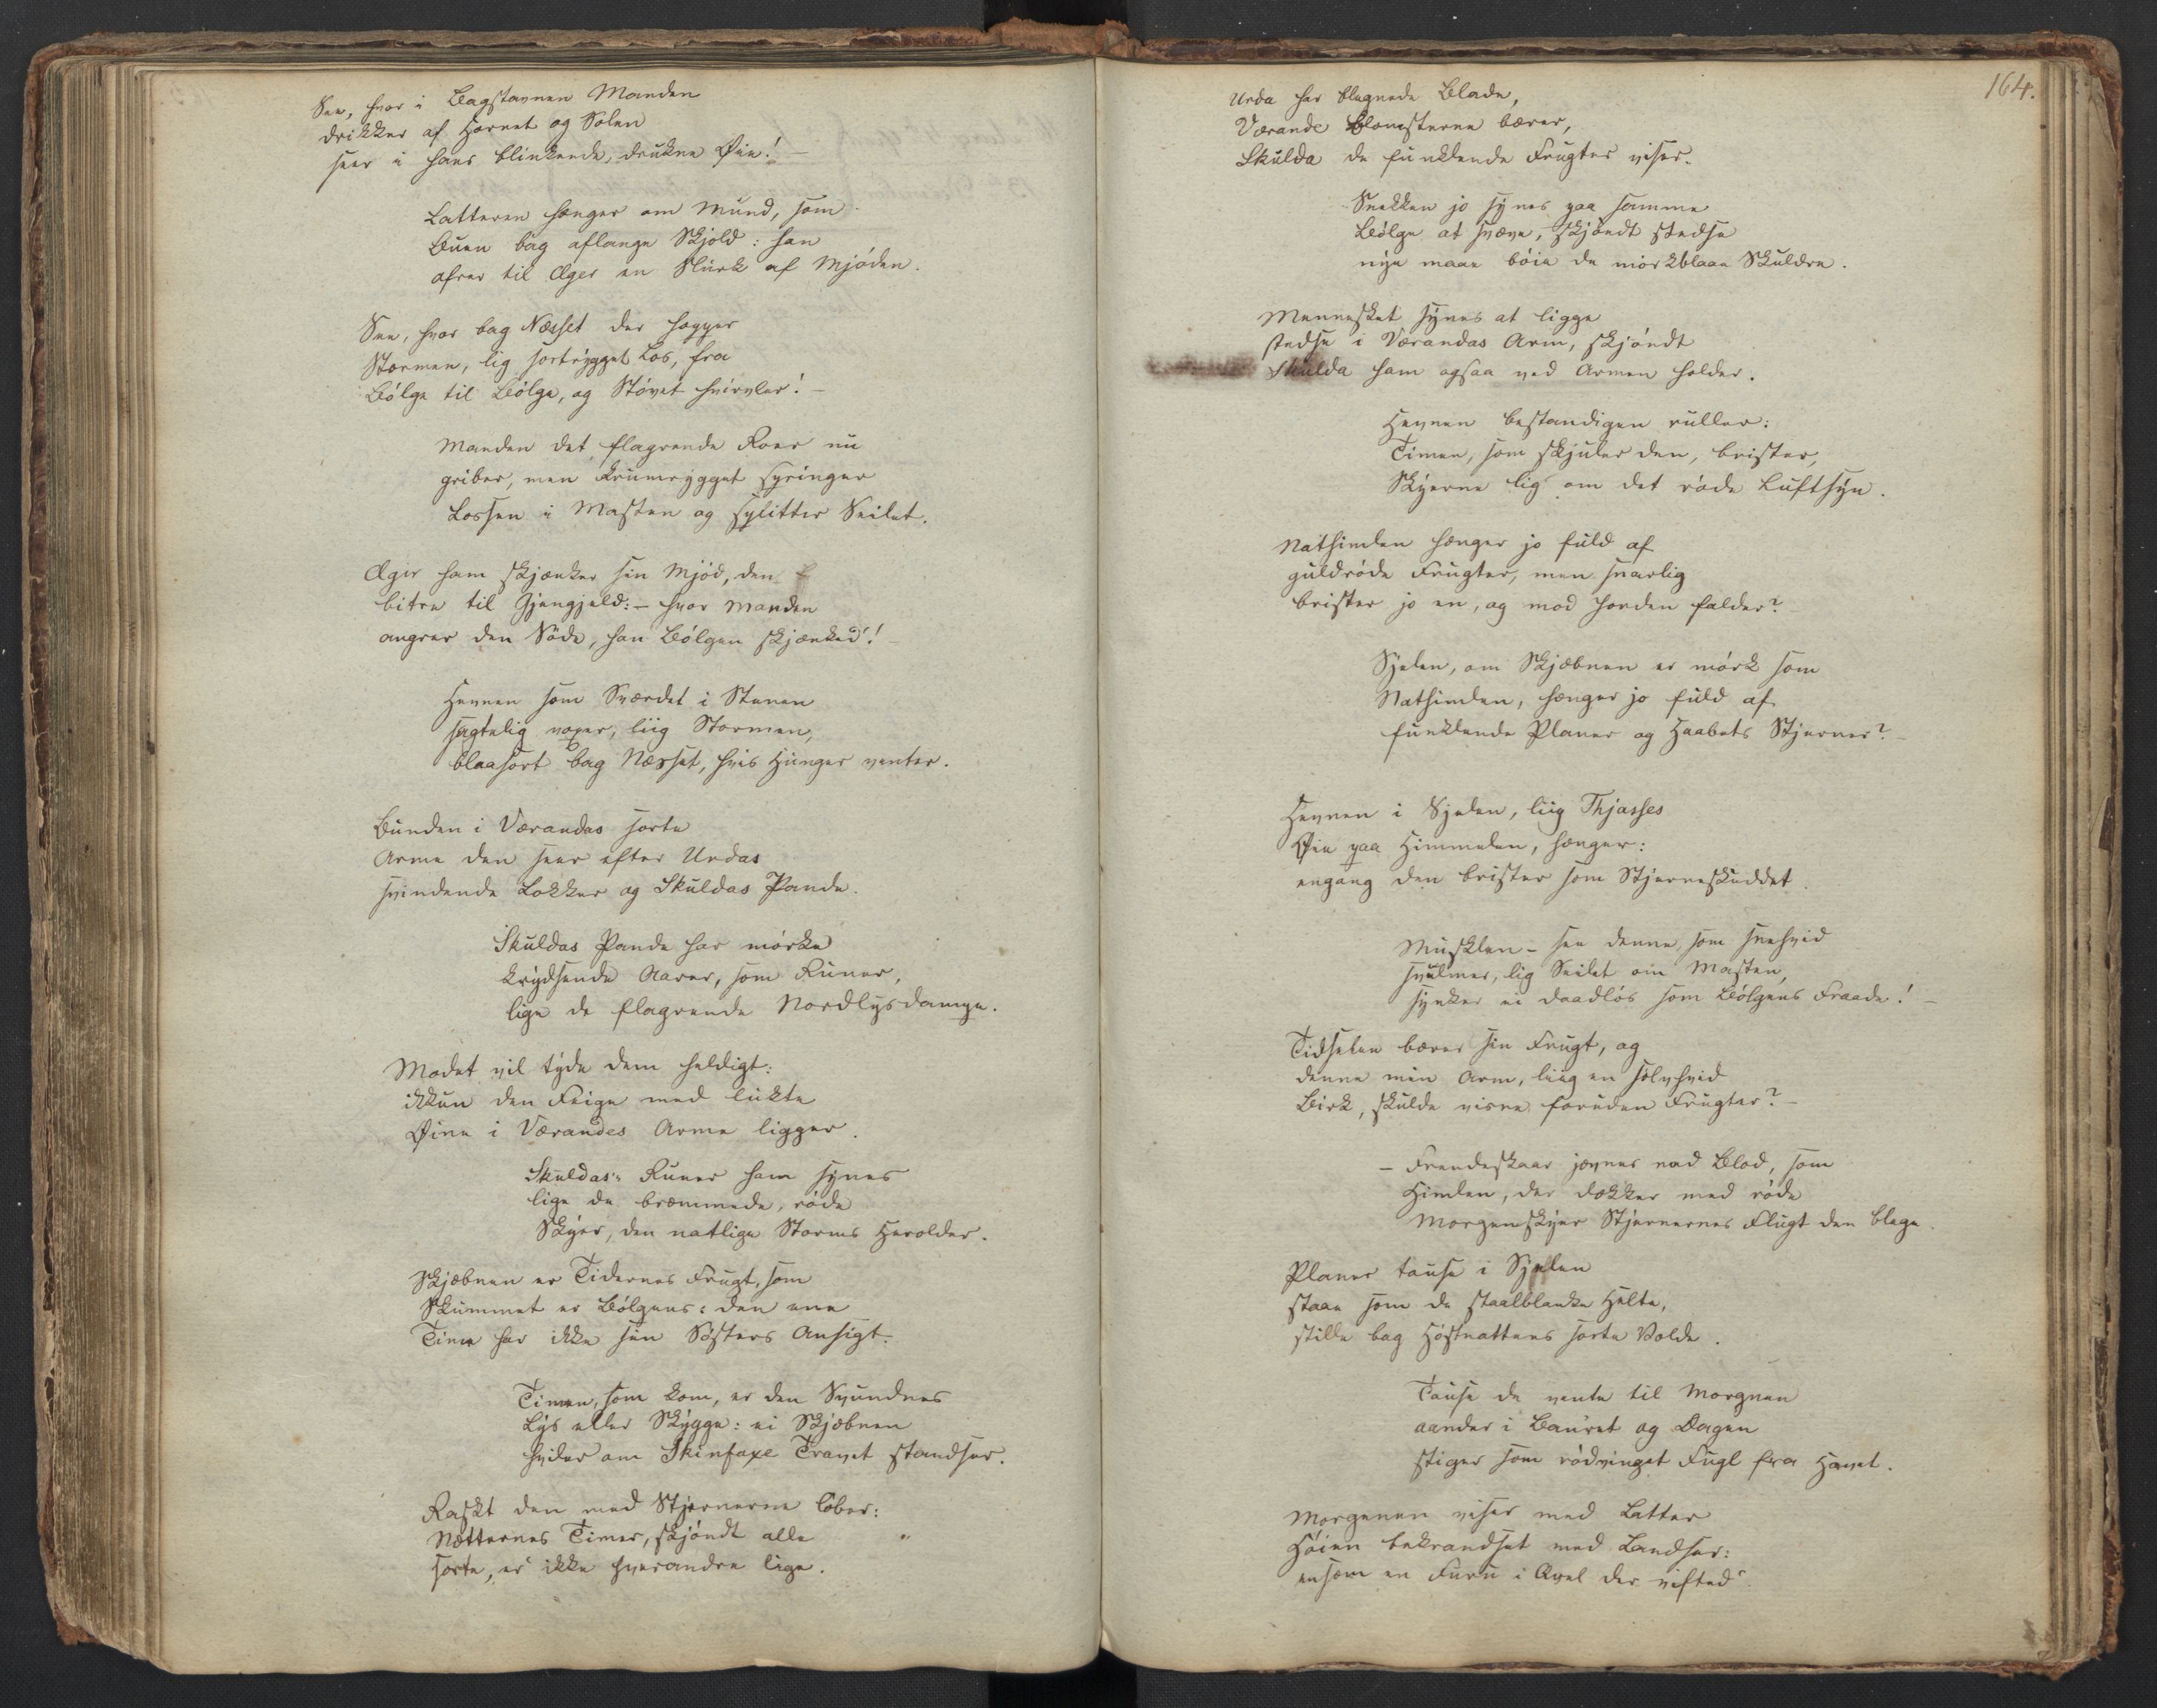 See, hvor i Bagstavnen Manden
drikker af Hornet og Solen
seer i hans blinkende, drukne Øie! –
Latteren hænger om Mund, som
Buen bag aflange Skjold: han
ofrer til Æger en Slurk af Mjøden.
See, hvor bag Næsset der hopper
Stormen, lig sortrygget Los, fra
Bölge til Bölge, og Støvet hvirvler! –
Manden det flagrende Roer nu
griber, men krumrygget springer
Lossen i Masten og splitter Seilet.
Ægir ham skjænker sin Mjöd, den
bitre til Gjengjeld: – hvor Manden
angrer den Söde, han Bölgen skjænked'! –
Hevnen som Sværdet i Stenen
sagtelig voxer, liig Stormen,
blaasort bag Næsset, hvis Hunger venter.
Bunden i Værandas sorte
Arme den seer efter Urdas
svindende Lokker og Skuldas Pande.
Skuldas Pande har mörke
krydsende Aarer, som Runer,
lige de flagrende Nordlysdampe.
Modet vil tyde dem heldigt:
ikkun den Feige med lukte
Øine i Værandes Arme ligger.
Skuldas Runer ham synes
lige de bræmmede, röde
Skyer, den natlige Storms Herolder.
Skjæbnen er Tidernes Frugt, som
Skummet er Bölgens: den ene
Time har ikke sin Søsters Ansigt.
Timen, som kom, er den Svundnes
Lys eller Skygge: ei Skjæbnen
hviler om Skinfaxe Travet standser.
Raskt den med Stjernerne löber:
Nætternes Timer, skjöndt alle
sorte, er ikke hverandre lige.
164.
Urda har blegnede Blade,
Værande Blomsterne bærer,
Skulda de funklende Frugter viser.
Snekken jo synes paa samme
Bölge at svæve, skjöndt stedse
nye maae böie de mörkblaae Skuldre.
Mennesket synes at ligge
stedse i Værandas Arm, skjöndt
Skulda ham ogsaa ved Armen holder.
Hevnen bestandigen ruller:
Timen, som skjuler den, brister,
Skyerne lig om det röde Luftsyn.
Nathimlen hænger jo fuld af
guldröde Frugter, men snarlig
brister jo en, og mod Jorden falder? –
Sjelen, om Skjæbnen er mörk som
Nathimlen, hænger jo fuld af
funklende Planer og Haabets Stjerner? –
Hevnen i Sjelen, liig Thjasses
Øie paa Himmelen, hænger:
engang den brister som Stjerneskuddet.
Musklen – see denne, som sneehvid
svulmer, lig Seilet om Masten,
synker ei daadlös som Bölgens Fraade! –
Tidselen bærer sin Frugt, og
denne min Arm, liig en sølvhvid
Birk, skulde visne foruden Frugter? –
– Frendeskaar jevnes ved Blod, som
Himlen, der dækker med röde
Morgenskyer Stjernernes Flugt den blege.
Planer tause i Sjelen
staae som de staalblanke Helte,
stille bag Höstnattens sorte Volde.
Tause de vente til Morgnen
aander i Bauret og Dagen
stiger som rödvinget Fugl fra Havet.
Morgenen viser med Latter
Höien bekrandset med Landser:
ensom en Furu i Qvel der vifted'